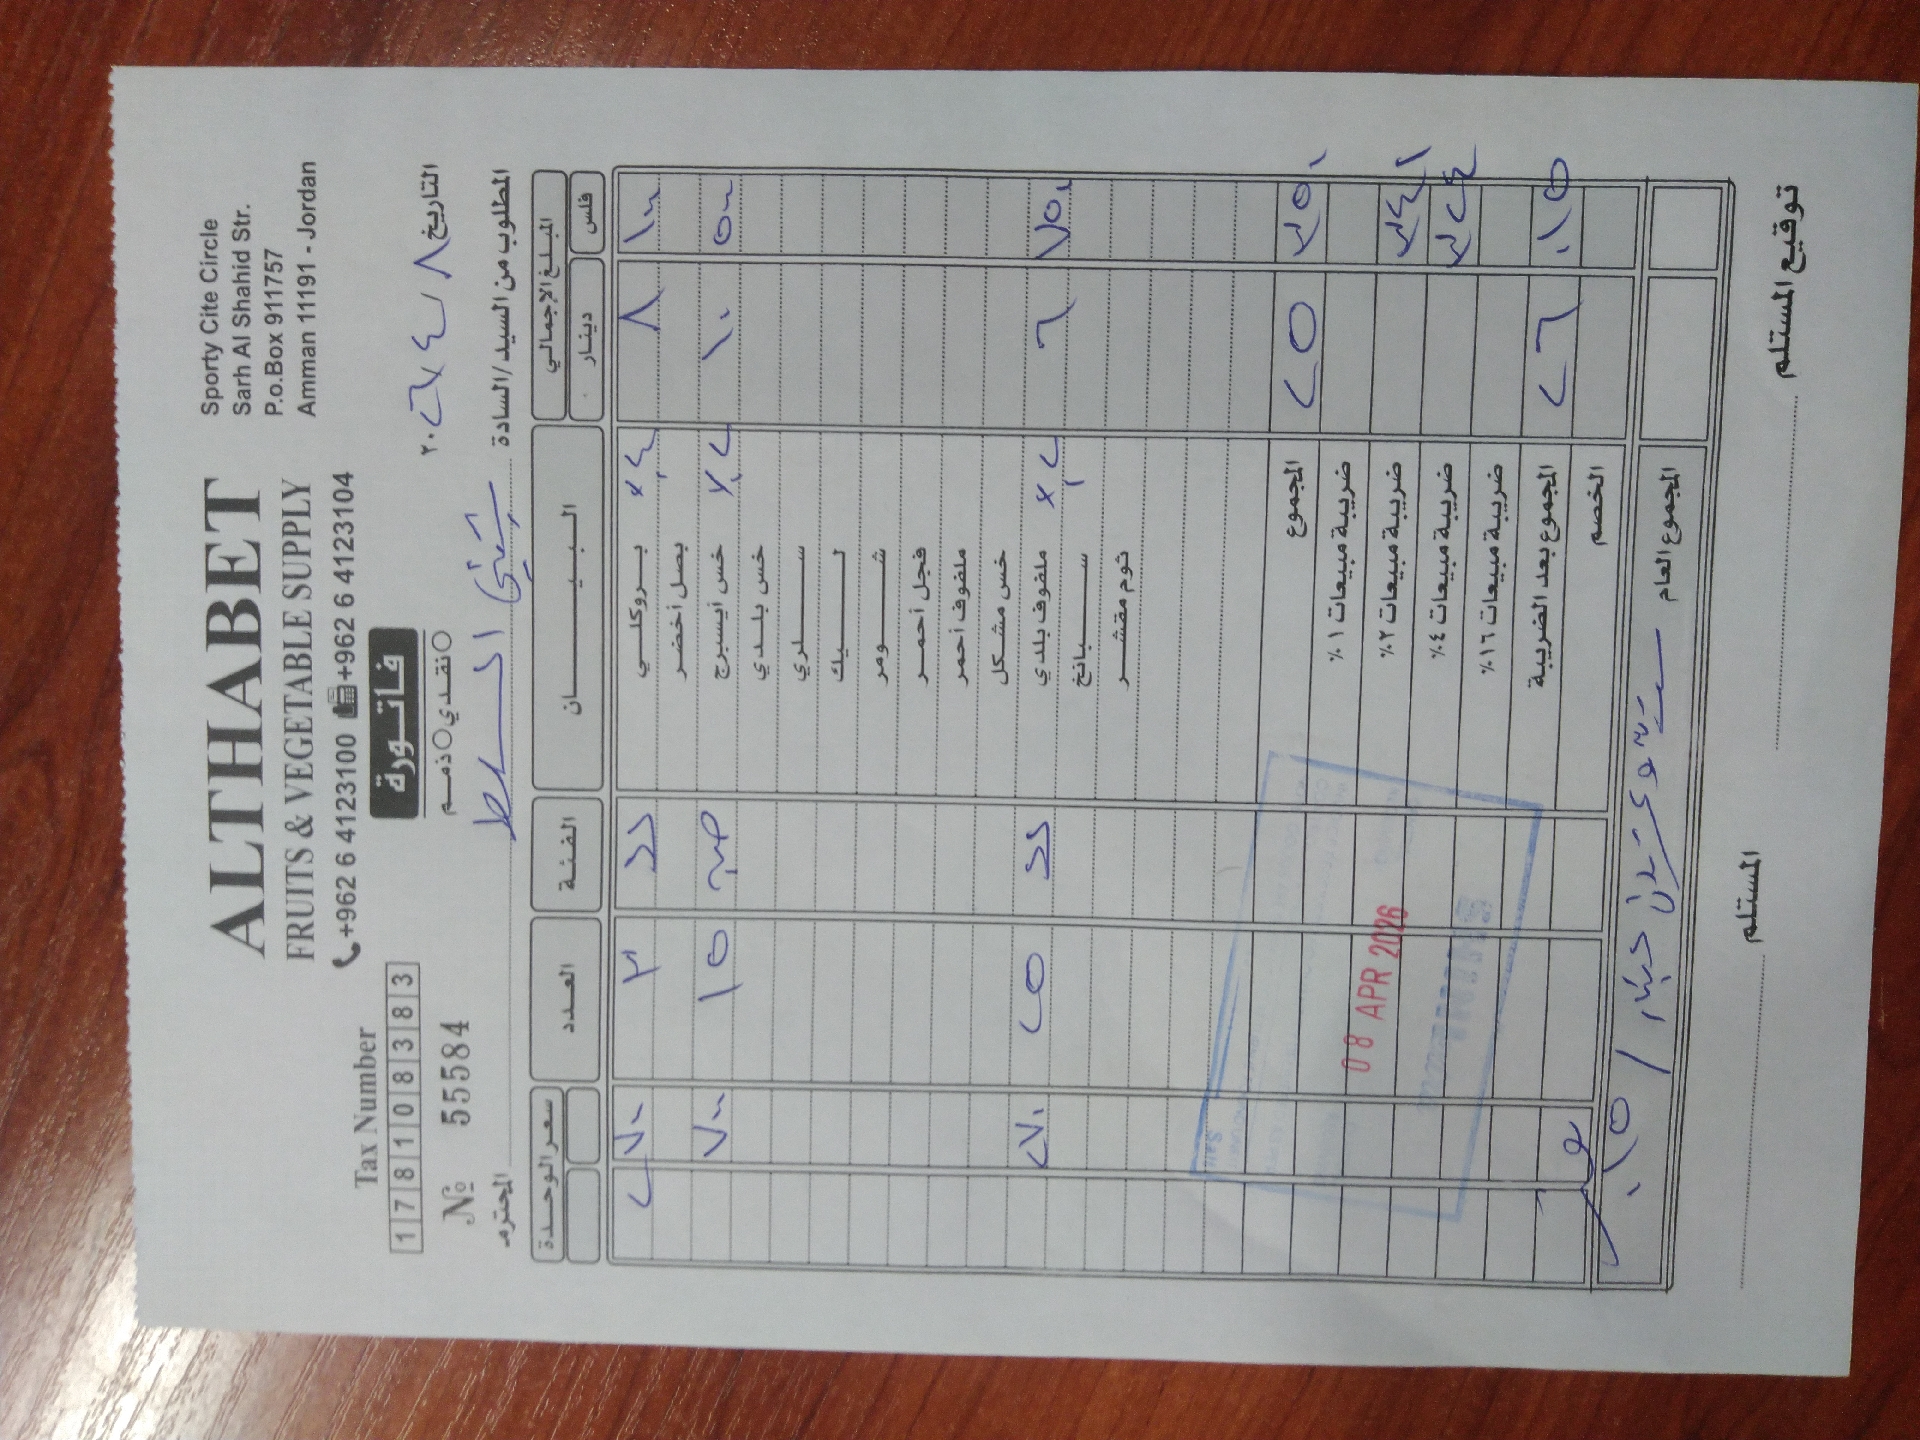 ALTHABET
FRUITS & VEGETABLE SUPPLY
+962 6 4123100 +962 6 4123104
Sporty Cite Circle
Sarh Al Shahid Str.
P.o.Box 911757
Amman 11191 - Jordan
Tax Number
1 7 8 1 0 8 3 8 3
№ 55584
فاتورة
نقدي ذمم
التاريخ ٨ / ٤ / ٢٠٢٦
المطلوب من السيد/السادة السلط المحترم
المبلغ الإجمالي البيـــان الفئة العدد سعر الوحدة
فلس دينار
١٠٠ ٨ بروكلي ×٪٤ ٣ ٢ ٧٠٠
بصل أخضر
٥٠٠ ١٠ خس أيسبرج ×٪٢ ١٥ ٧٠٠
خس بلدي
سلري
ليك
شومر
فجل أحمر
ملفوف أحمر
خس مشكل
٧٥٠ ٦ ملفوف بلدي ×٪٢ ٢٥ ٢٧٠
سبانخ
ثوم مقشر
٣٥٠ ٢٥ المجموع
ضريبة مبيعات ١٪
ضريبة مبيعات ٢٪
٣٢٤ ضريبة مبيعات ٤٪
ضريبة مبيعات ١٦٪
٠١٥ ٢٦ المجموع بعد الضريبة
الخصم
المجموع العام ستة وعشرون دينار / ٠١٥
08 APR 2026
المستلم
توقيع المستلم